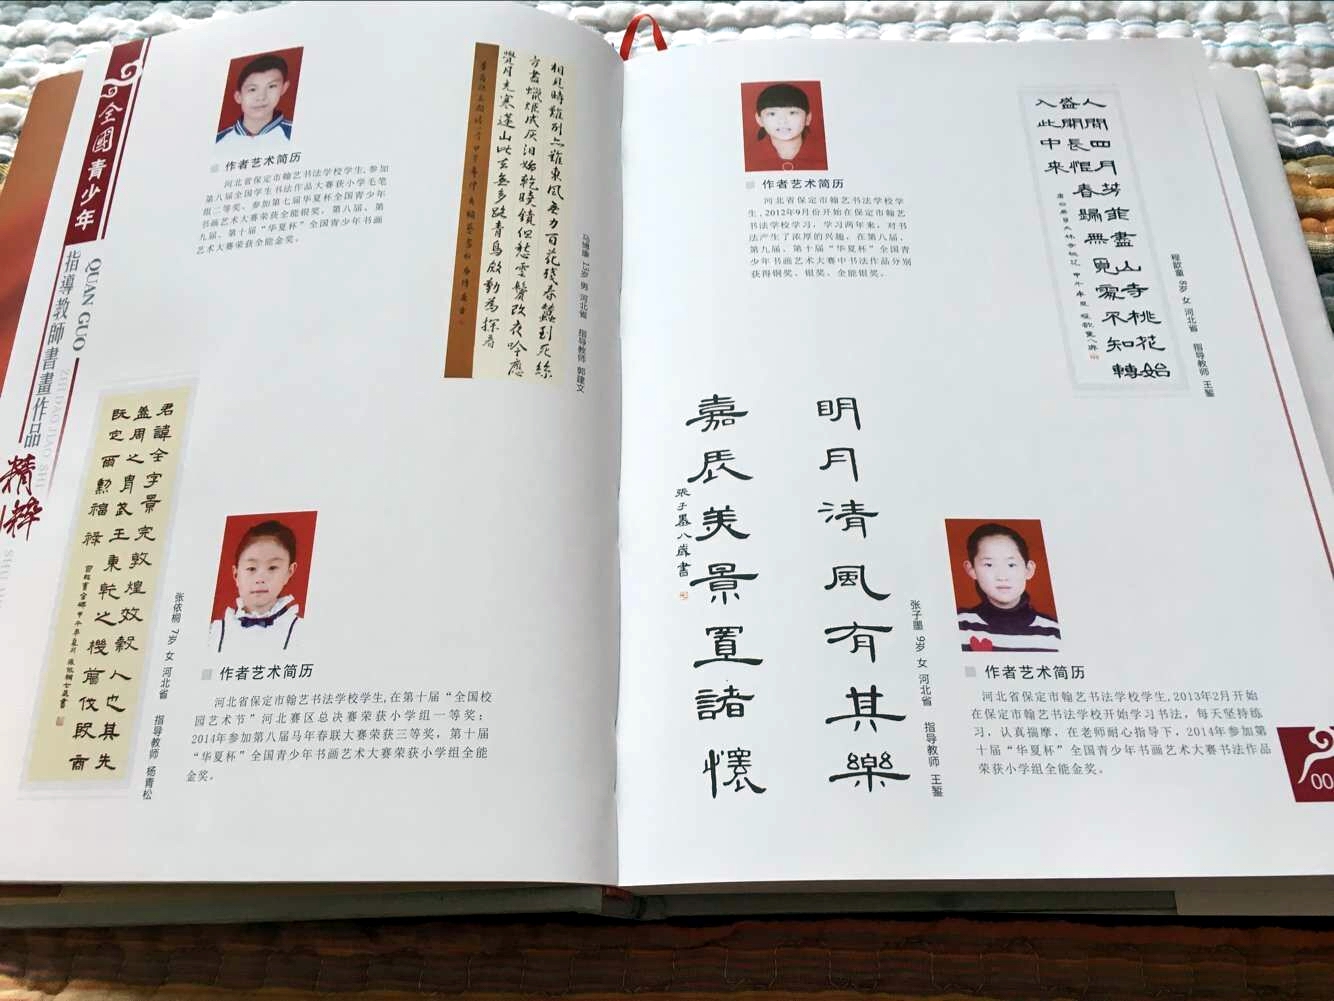 全國青少年
QUAN GUO
指導教師書畫作品
ZHI DAO JIAO SHI
精粹
作者艺术简历
河北省保定市翰艺书法学校学生,参加
第八届全国学生书法作品大赛获小学毛笔
组二等奖、参加第七届华夏杯全国青少年
书画艺术大赛荣获全能银奖、第八届、第
九届、第十届“华夏杯”全国青少年书画
艺术大赛荣获全能金奖。
相見時難別亦難東風無力百花殘春蠶到死絲
方盡蠟炬成灰淚始乾曉鏡但愁雲鬢改夜吟應
覺月光寒蓬山此去無多路青鳥殷勤為探看
13岁 男 河北省 指导教师 郭建文
君諱全字景完敦煌效穀人也其先
蓋周之胄武王秉乾之機翦伐殷商
既定爾勲福祿
张依桐 7岁 女 河北省 指导教师 杨青松
作者艺术简历
河北省保定市翰艺书法学校学生,在第十届“全国校
园艺术节”河北赛区总决赛荣获小学组一等奖；
2014年参加第八届马年春联大赛荣获三等奖，第十届
“华夏杯”全国青少年书画艺术大赛荣获小学组全能
金奖。
作者艺术简历
河北省保定市翰艺书法学校学
生,2012年9月份开始在保定市翰艺
书法学校学习，学习两年来，对书
法产生了浓厚的兴趣，在第八届、
第九届、第十届“华夏杯”全国青
少年书画艺术大赛中书法作品分别
获得铜奖、银奖、全能银奖。
人間四月芳菲盡山寺桃花始
盛開長恨春歸無覓處不知轉
入此中来
8岁 女 河北省 指导教师 王錾
明月清風有其樂
嘉辰美景置諸懷
張子墨八歲書
张子墨 9岁 女 河北省 指导教师 王錾
作者艺术简历
河北省保定市翰艺书法学校学生,2013年2月开始
在保定市翰艺书法学校开始学习书法，每天坚持练
习，认真揣摩，在老师耐心指导下，2014年参加第
十届“华夏杯”全国青少年书画艺术大赛书法作品
荣获小学组全能金奖。
00